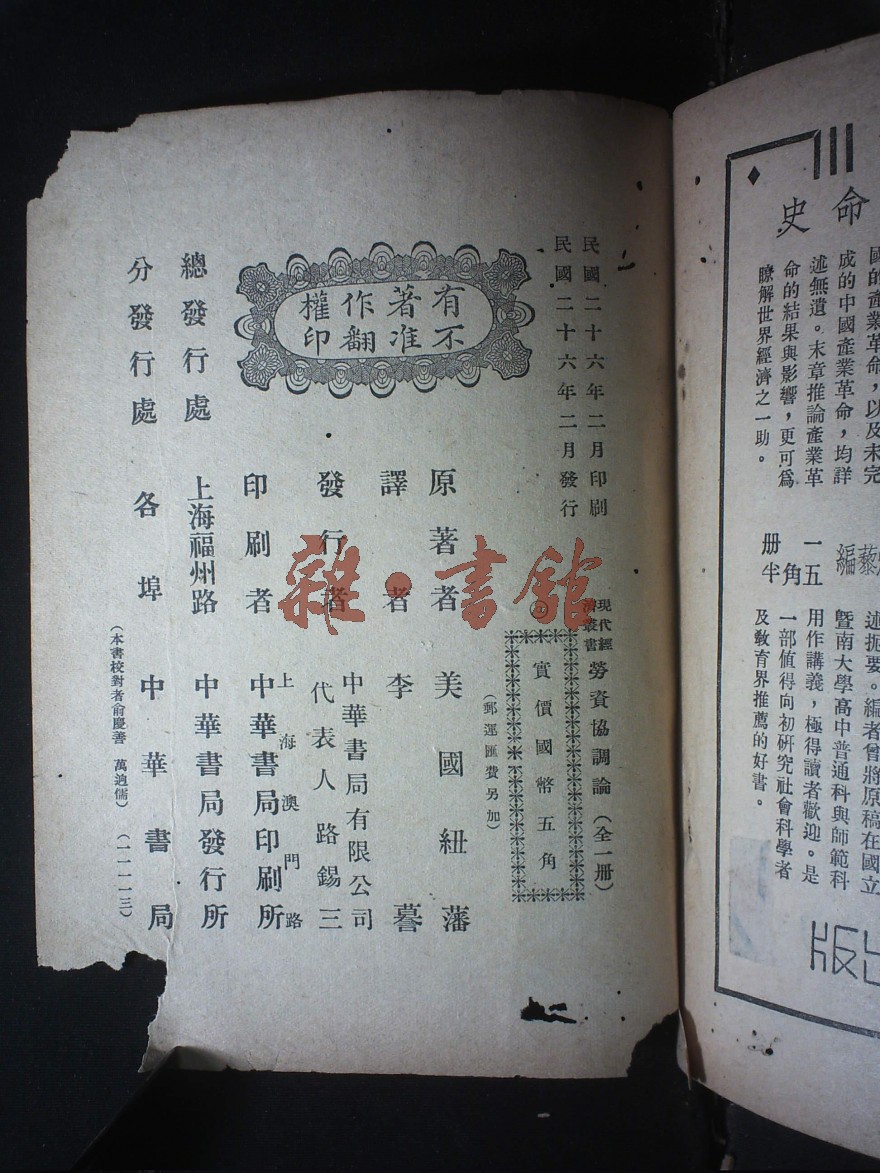 命
史
國的產業革命，以及未完
成的中國產業革命，均詳
述無遺。末章推論產業革
命的結果與影響，更可爲
瞭解世界經濟之一助。
編
一角五
册半
述扼要。編者曾將原稿在國立
暨南大學高中普通科與師範科
用作講義，極得讀者歡迎。是
一部値得向初研究社會科學者
及敎育界推薦的好書。
版
民國二十六年二月印刷
民國二十六年二月發行
現代經
濟叢書
勞資協調論（全一册）
實價國幣五角
（郵運匯費另加）
有著作權
不准翻印
原著者 美國紐藩
譯者 李蕃
發行者 中華書局有限公司
代表人路錫三
印刷者 上海澳門路
中華書局印刷所
總發行處 上海福州路 中華書局發行所
分發行處 各埠 中華書局
（本書校對者俞慶善 萬逈儒）（一一一一三）
雜·書館